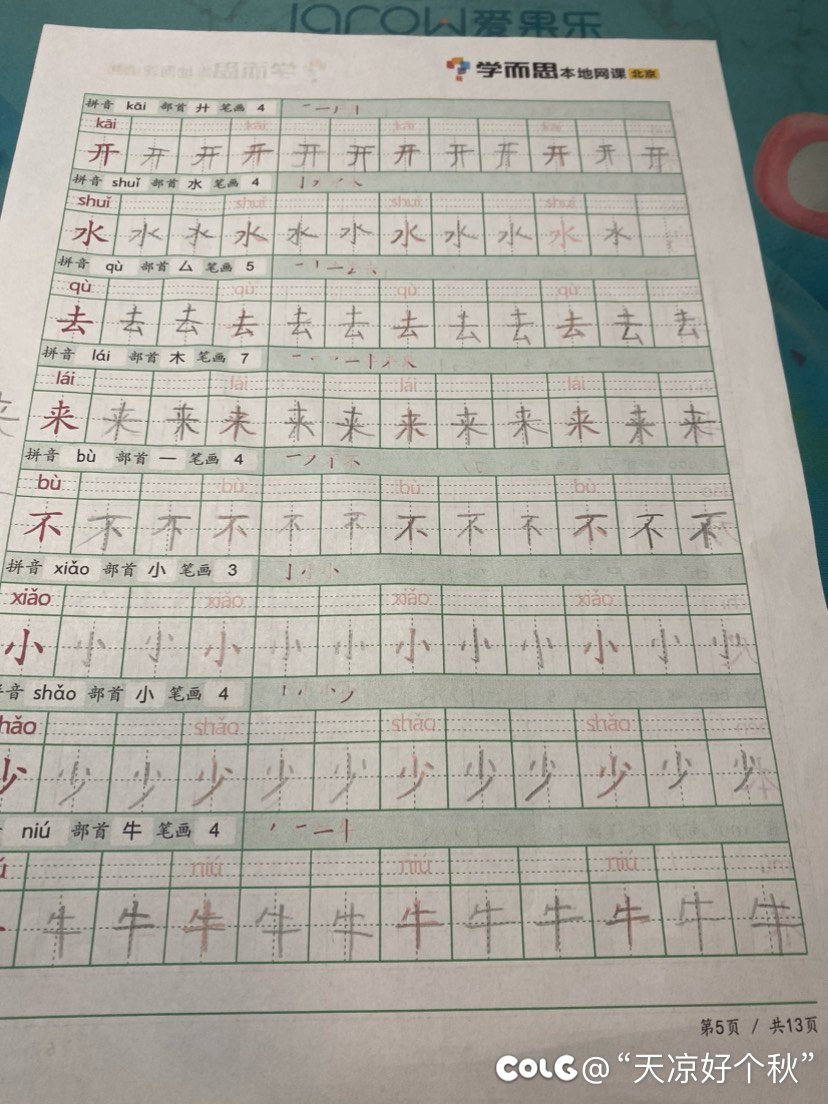 jarow爱果乐
学而思本地网课 北京
拼音 kāi 部首 廾 笔画 4
kāi kāi kāi kāi
开 开 开 开 开 开 开 开 开 开 开 开
拼音 shuǐ 部首 水 笔画 4
shuǐ shuǐ shuǐ shuǐ
水 水 水 水 水 水 水 水 水 水 水
拼音 qù 部首 厶 笔画 5
qù qù qù qù
去 去 去 去 去 去 去 去 去 去 去 去
拼音 lái 部首 木 笔画 7
lái lái lái lái
来 来 来 来 来 来 来 来 来 来 来 来
拼音 bù 部首 一 笔画 4
bù bù bù bù
不 不 不 不 不 不 不 不 不 不 不 不
拼音 xiǎo 部首 小 笔画 3
xiǎo xiǎo xiǎo xiǎo
小 小 小 小 小 小 小 小 小 小 小 小
音 shǎo 部首 小 笔画 4
hǎo shǎo shǎo shǎo
少 少 少 少 少 少 少 少 少 少 少 少
niú 部首 牛 笔画 4
ú niú niú niú
牛 牛 牛 牛 牛 牛 牛 牛 牛 牛 牛
第5页 / 共13页
COLG@“天凉好个秋”